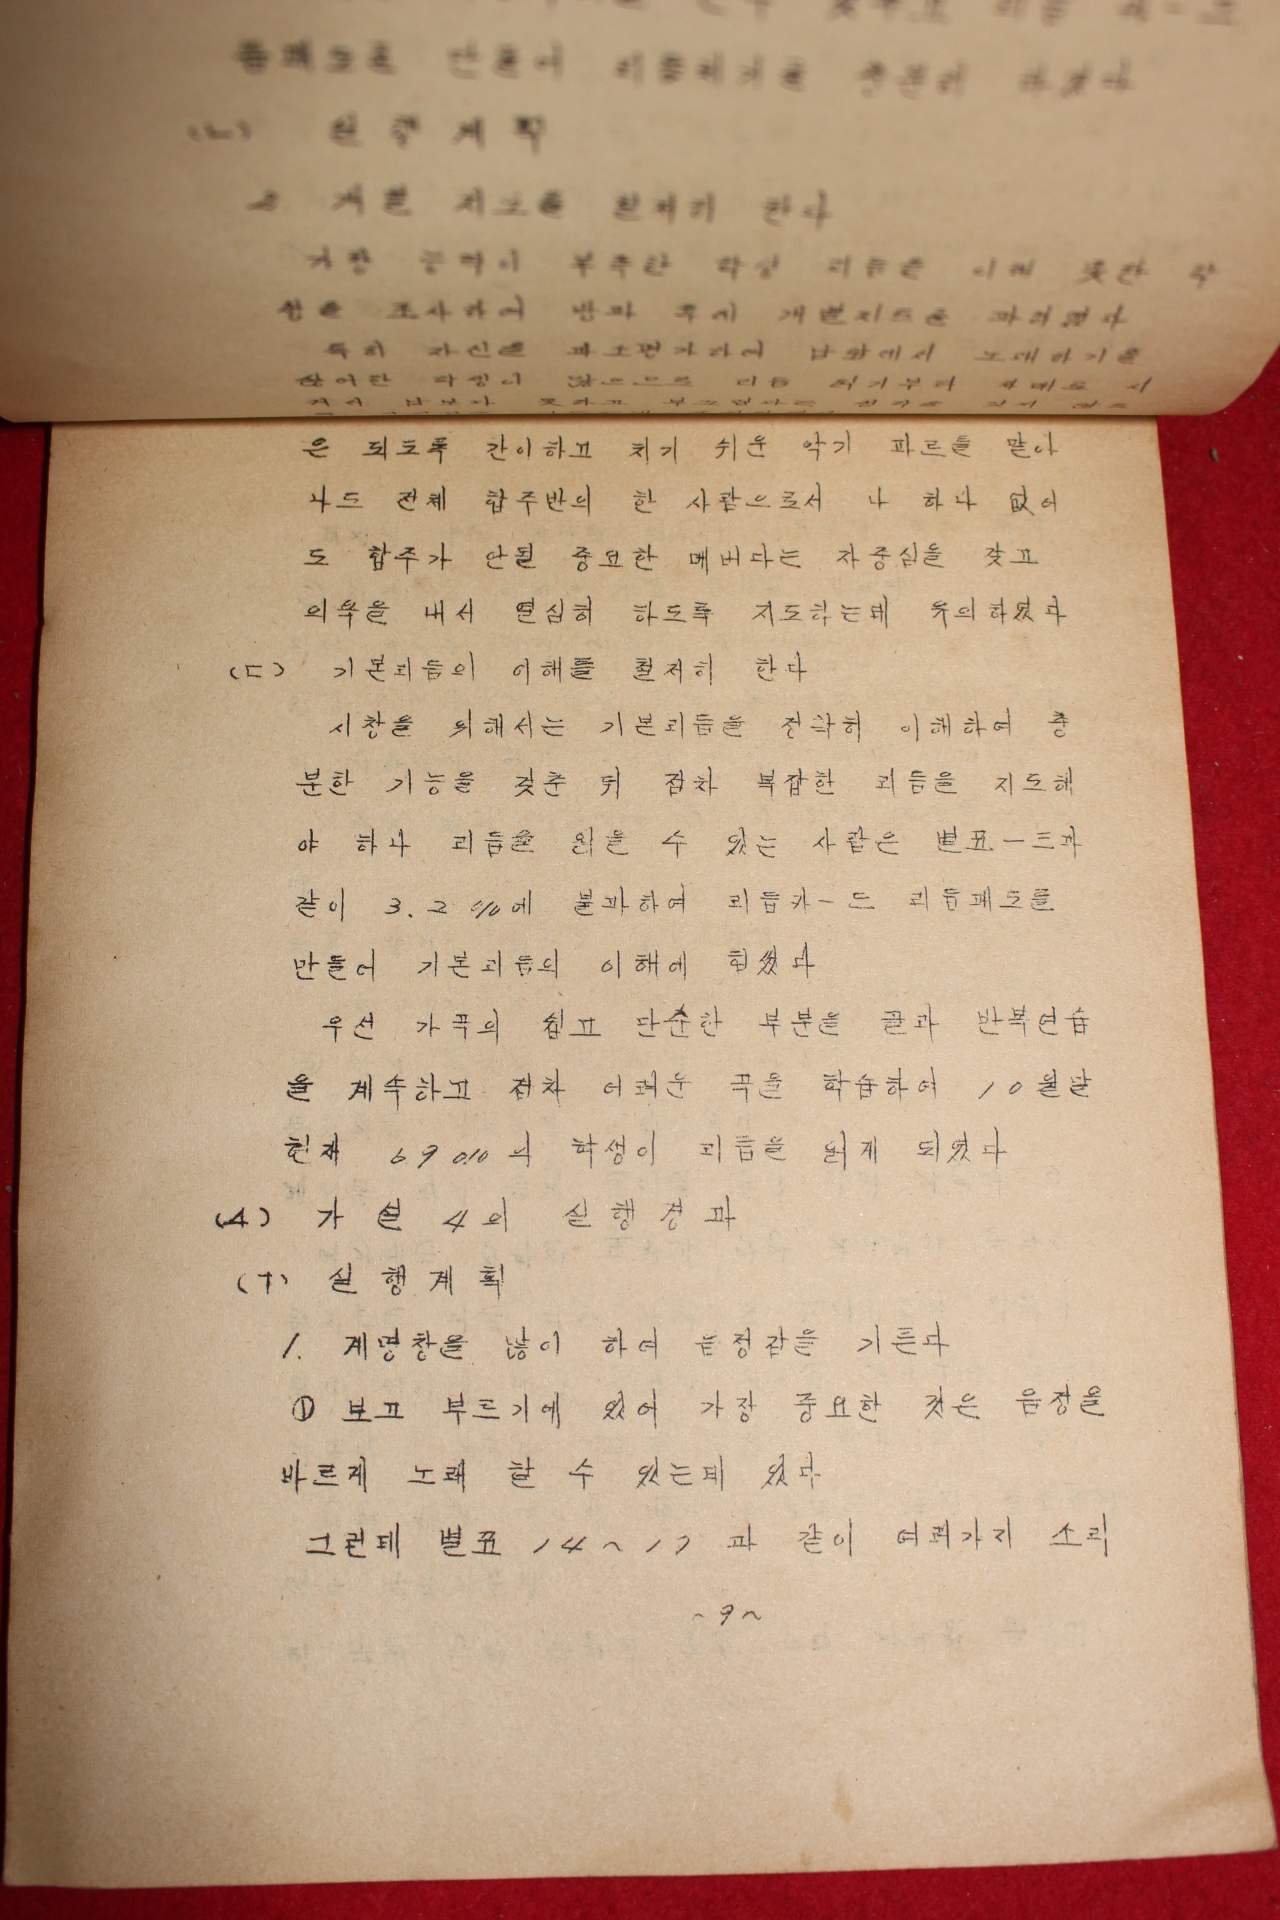 (ㄴ) 실행계획
2 개별 지도를 철저히 한다
가창 능력이 부족한 학생 리듬을 이해 못한 학
생을 조사하여 방과 후에 개별지도를 하려였다
특히 자신을 과소평가하여 남앞에서 노래하기를
은 되도록 간이하고 치기 쉬운 악기 파르를 맡아
나도 전체 합주반의 한 사람으로서 나 하나 없어
도 합주가 안될 중요한 메버다는 자중심을 갖고
의욕을 내서 열심히 하도록 지도하는데 유의하였다
(ㄷ) 기본리듬의 이해를 철저히 한다
시창을 위해서는 기본리듬을 정확히 이해하여 충
분한 기능을 갖춘 뒤 점차 복잡한 리듬을 지도해
야 하나 리듬을 읽을 수 있는 사람은 별표ー드과
같이 3.2%에 불과하여 리듬카ー드 리듬패도를
만들어 기본리듬의 이해에 힘썼다
우선 가곡의 쉽고 단순한 부분을 골과 반복연습
을 계속하고 점차 어려운 곡을 학습하여 10월달
현재 69%의 학생이 리듬을 읽게 되였다
(4) 가설 4의 실행경과
(ㄱ) 실행계획
1. 계명창을 많이 하여 음정감을 기른다
① 보고 부르기에 있어 가장 중요한 것은 음정을
바르게 노래 할 수 있는데 있다
그런데 별표 14~17과 같이 여러가지 소리
~9~